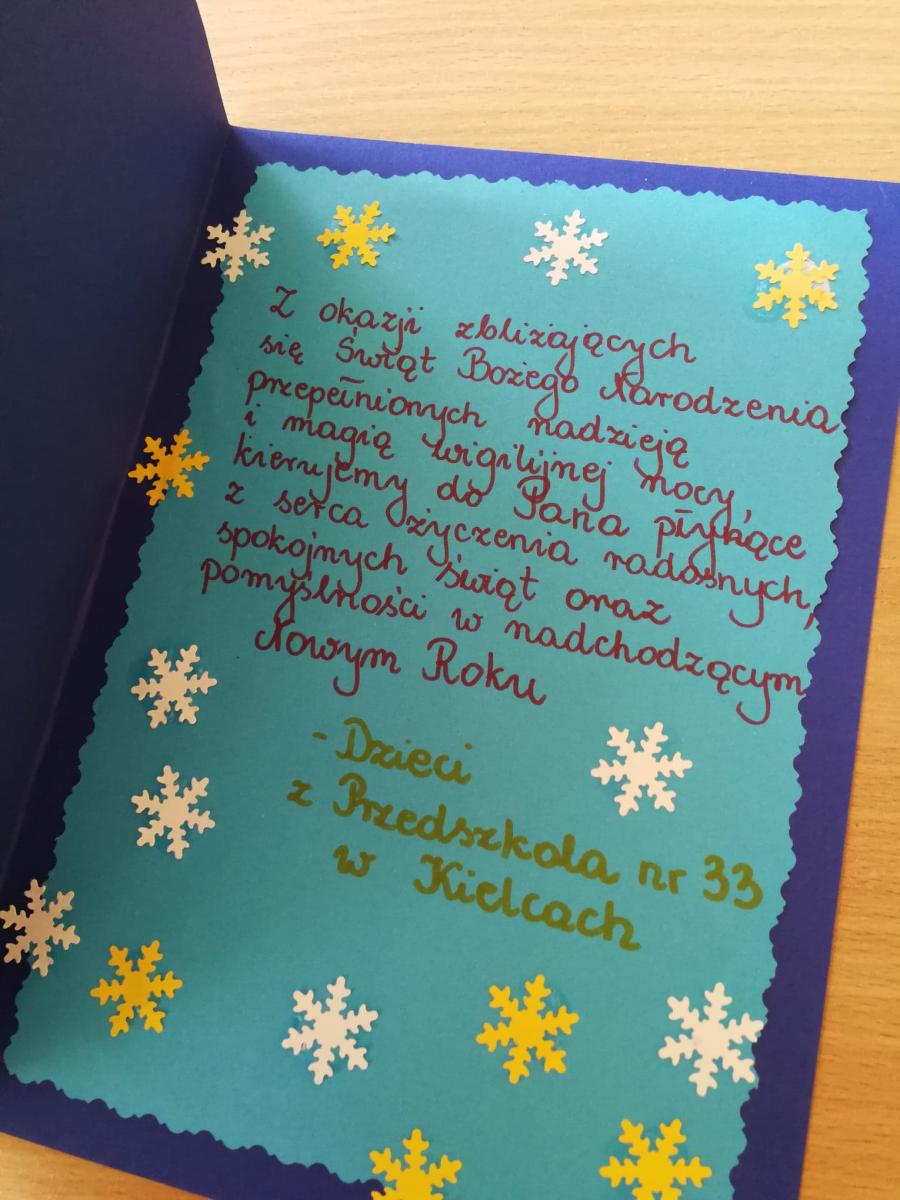 Z okazji zbliżających
się Świąt Bożego Narodzenia
przepełnionych nadzieją
i magią wigilijnej nocy,
kierujemy do Pana płynące
z serca życzenia radosnych,
spokojnych świąt oraz
pomyślności w nadchodzącym
Nowym Roku
- Dzieci
z Przedszkola nr 33
w Kielcach